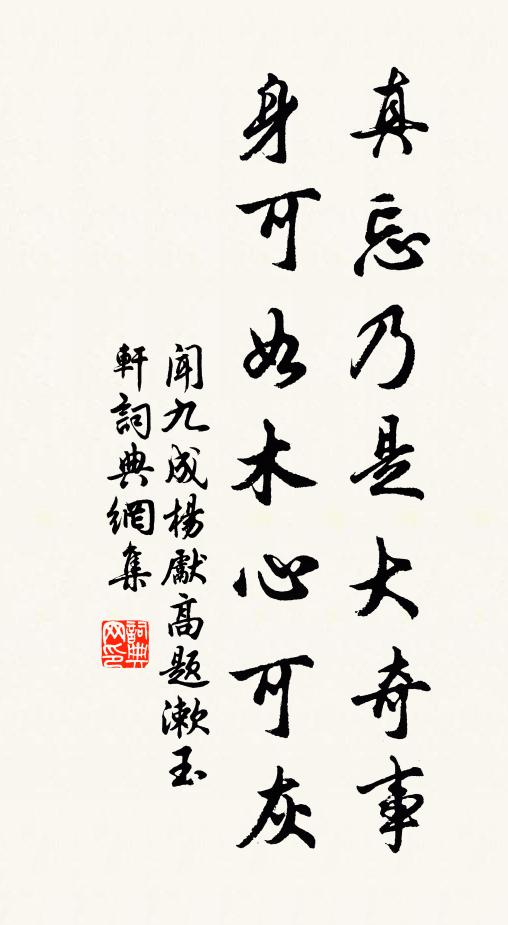 真忘乃是大奇事
身可如木心可灰
聞九成楊獻高題漱玉
軒詞典網集
詞典网印